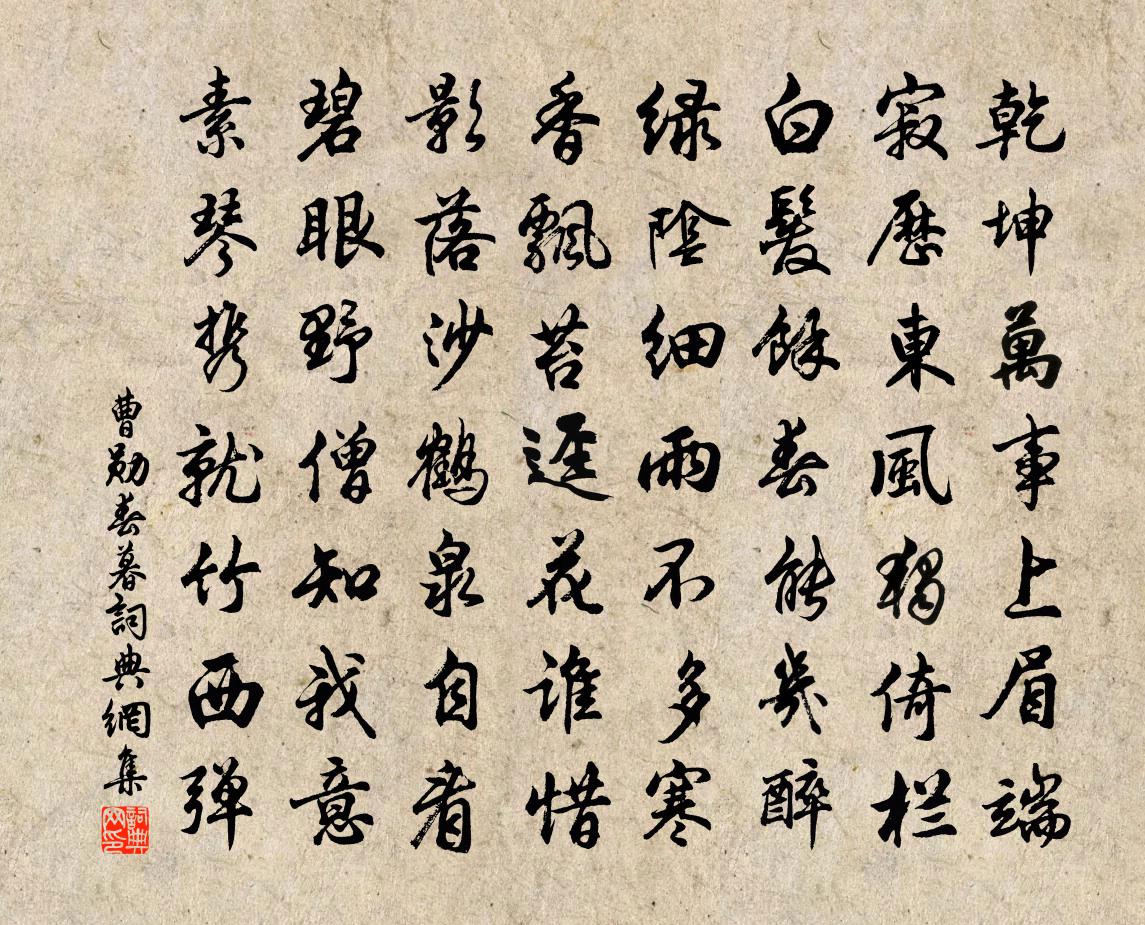 乾坤萬事上眉端
寂歷東風獨倚栏
白髮餘春能幾醉
緑陰細雨不多寒
香飄苔逕花誰惜
影落沙鶴泉自看
碧眼野僧知我意
素琴携就竹西弹
曹勛春暮詞典網集
詞典网印